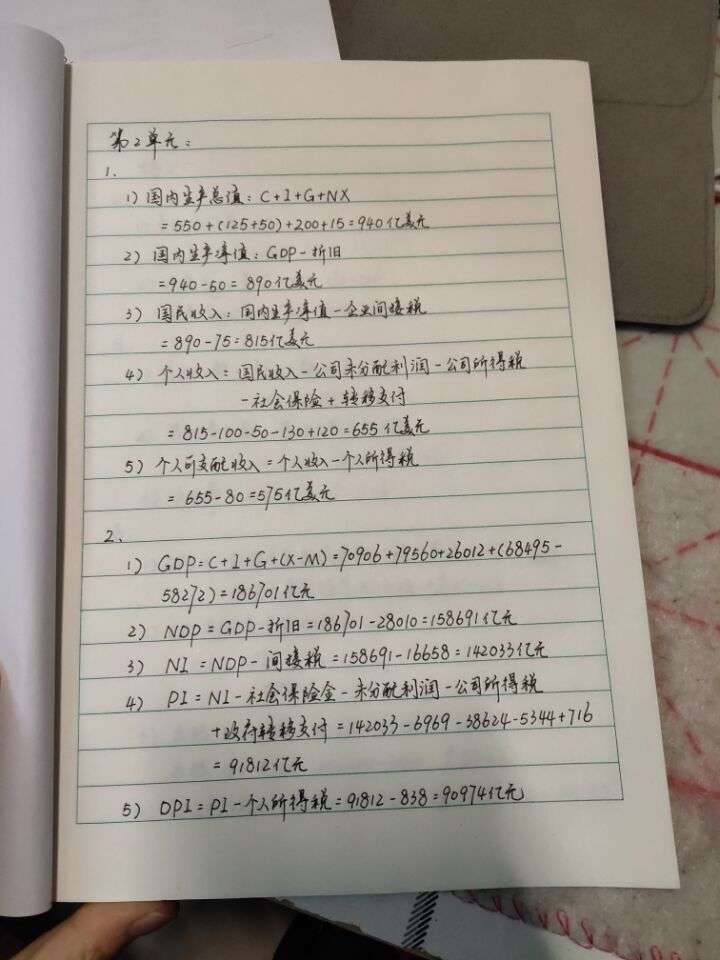 第2单元:
1、
1) 国内生产总值: C+I+G+NX
=550+(125+50)+200+15=940亿美元
2) 国内生产净值: GDP-折旧
=940-50=890亿美元
3) 国民收入: 国内生产净值-企业间接税
=890-75=815亿美元
4) 个人收入: 国民收入-公司未分配利润-公司所得税
-社会保险+转移支付
=815-100-50-130+120=655亿美元
5) 个人可支配收入=个人收入-个人所得税
=655-80=575亿美元
2、
1) GDP=C+I+G+(X-M)=70906+79560+26012+(68495-
58272)=186701亿元
2) NDP=GDP-折旧=186701-28010=158691亿元
3) NI=NDP-间接税=158691-16658=142033亿元
4) PI=NI-社会保险金-未分配利润-公司所得税
+政府转移支付=142033-6969-38624-5344+716
=91812亿元
5) DPI=PI-个人所得税=91812-838=90974亿元